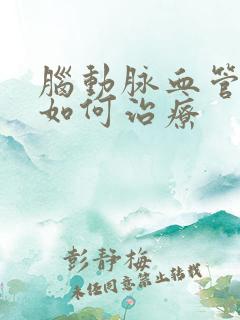 腦動脉血管
如何治療
彭静梅
未经同意禁止转载